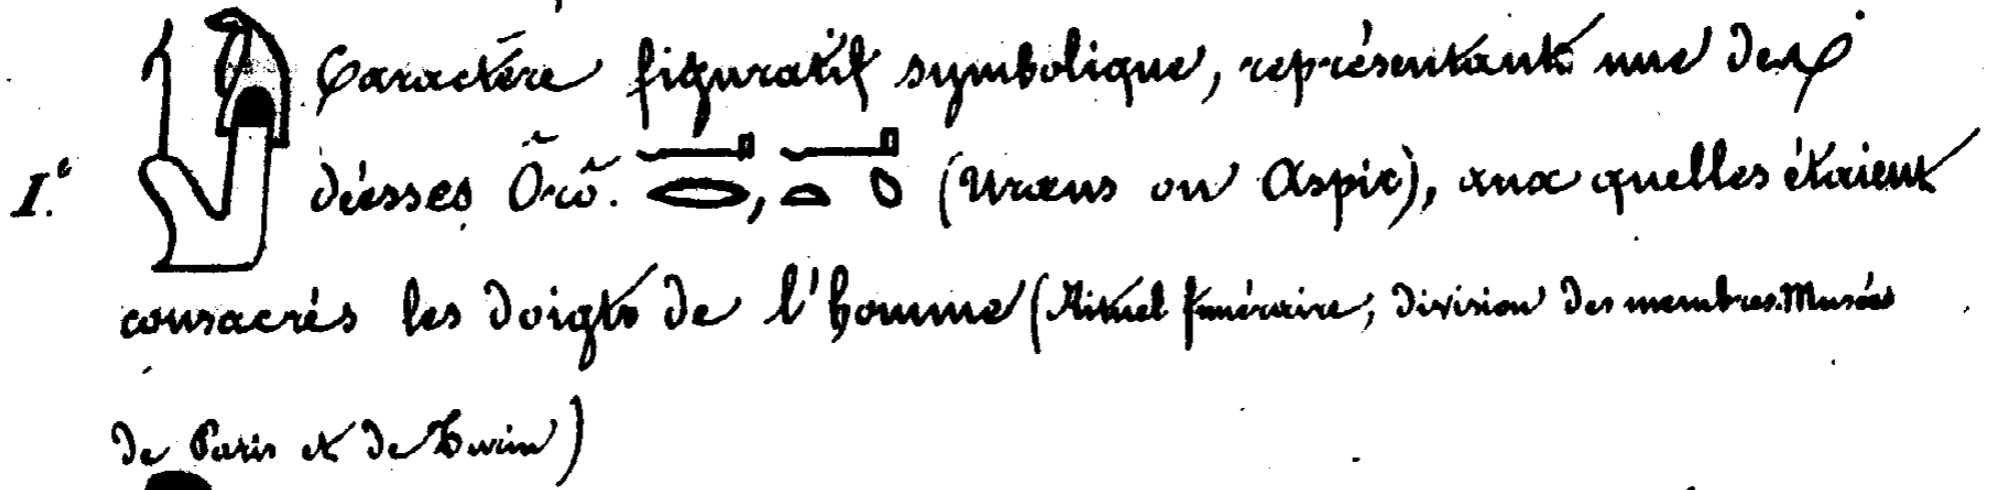 Caractère figuratif symbolique, représentant une des
I.e déesses Ôrô. , (Uraeus ou Aspic), aux quelles étaient
consacrés les doigts de l'homme (Rituel funéraire, division des membres. Musées
de Paris et de Turin)